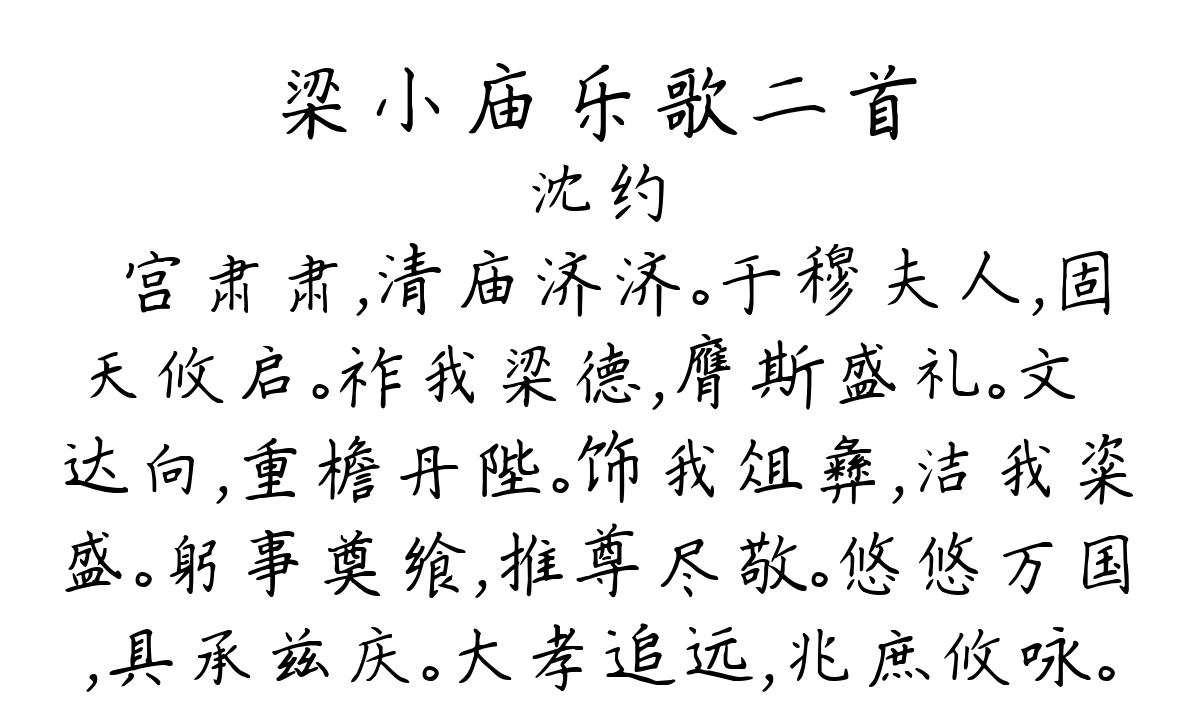 梁小庙乐歌二首
沈约
宫肃肃,清庙济济。于穆夫人,固
天攸启。祚我梁德,膺斯盛礼。文
达向,重檐丹陛。饰我俎彝,洁我粢
盛。躬事奠飨,推尊尽敬。悠悠万国
,具承兹庆。大孝追远,兆庶攸咏。